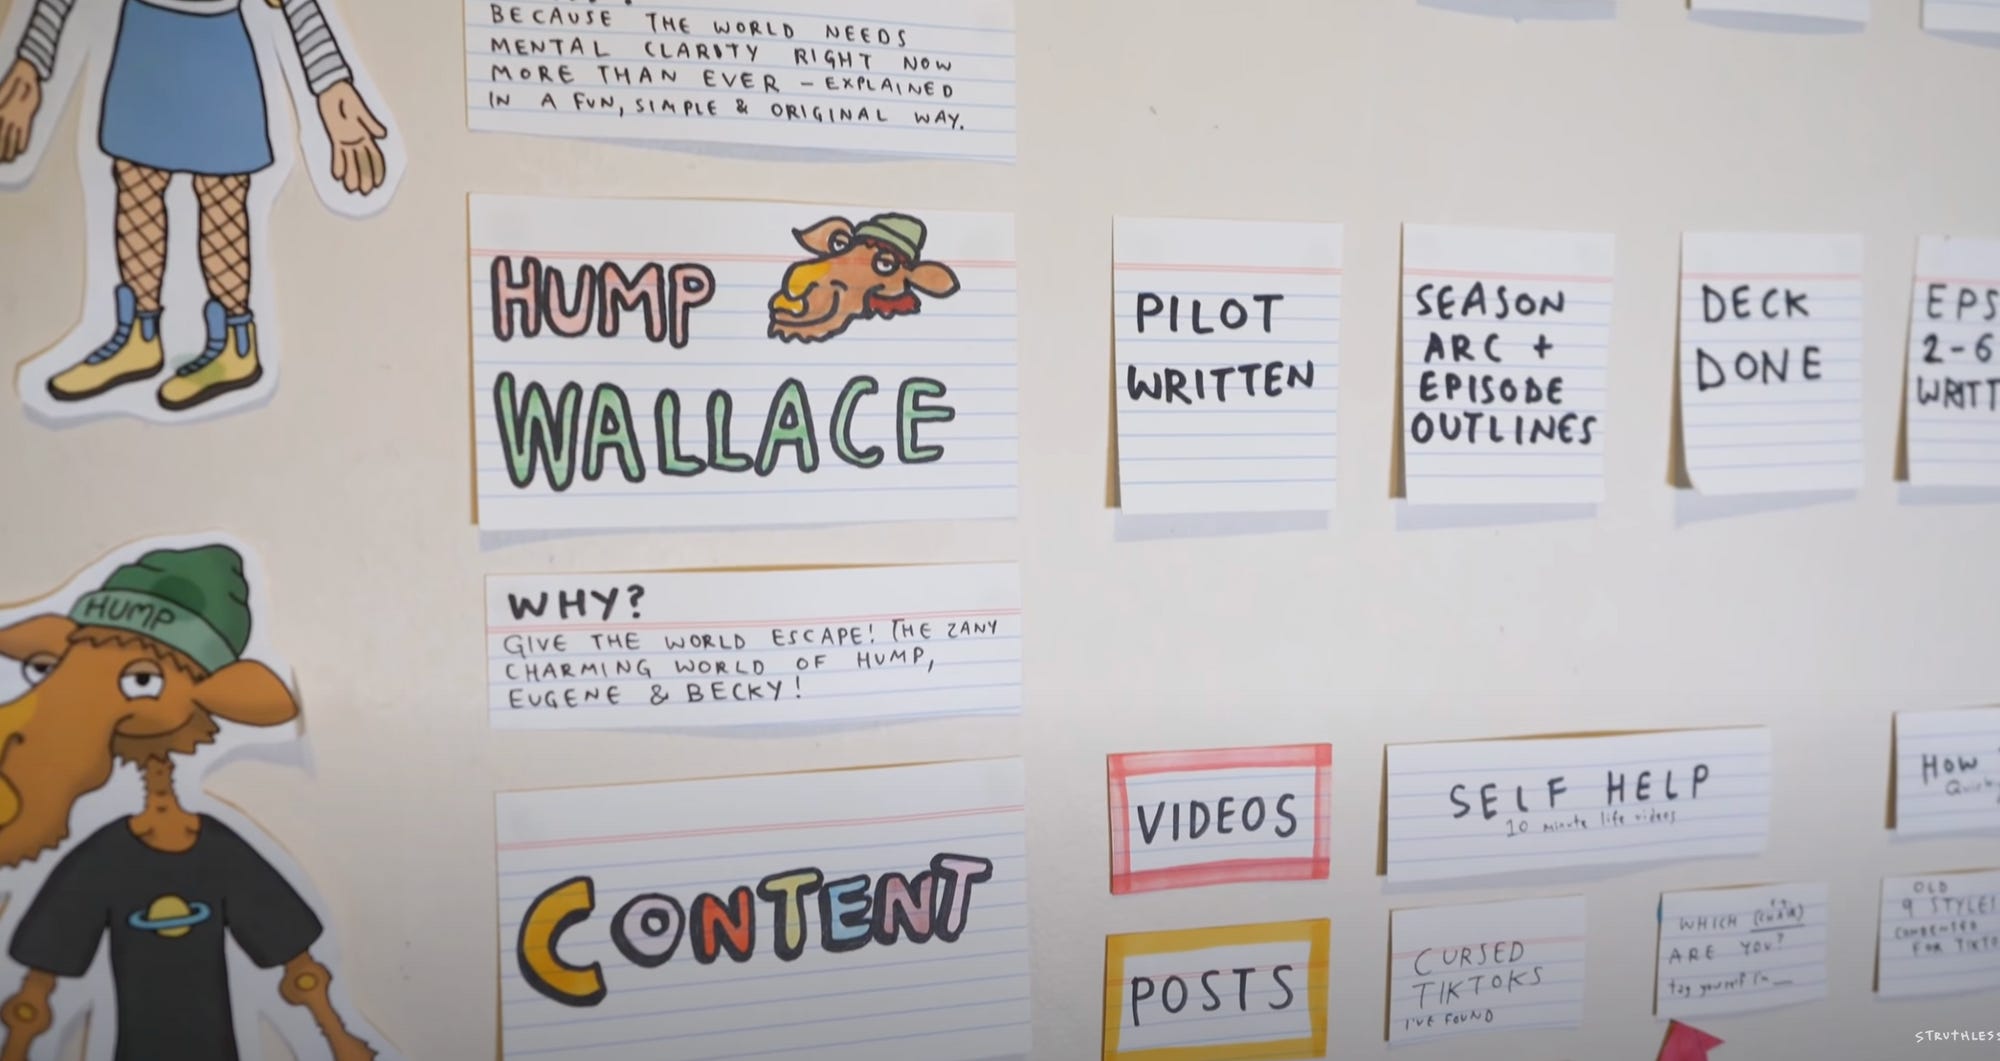 BECAUSE THE WORLD NEEDS
MENTAL CLARITY RIGHT NOW
MORE THAN EVER – EXPLAINED
IN A FUN, SIMPLE & ORIGINAL WAY.
HUMP
WALLACE
PILOT
WRITTEN
SEASON
ARC +
EPISODE
OUTLINES
DECK
DONE
EPS
2-6
WRITT
HUMP
WHY?
GIVE THE WORLD ESCAPE! THE ZANY
CHARMING WORLD OF HUMP,
EUGENE & BECKY!
CONTENT
VIDEOS
SELF HELP
10 minute life videos
HOW
POSTS
CURSED
TIKTOKS
I'VE FOUND
WHICH
ARE YOU?
tag yourself in
OLD
9 STYLES
CONDENSED
FOR TIKTO
STRUTHLESS